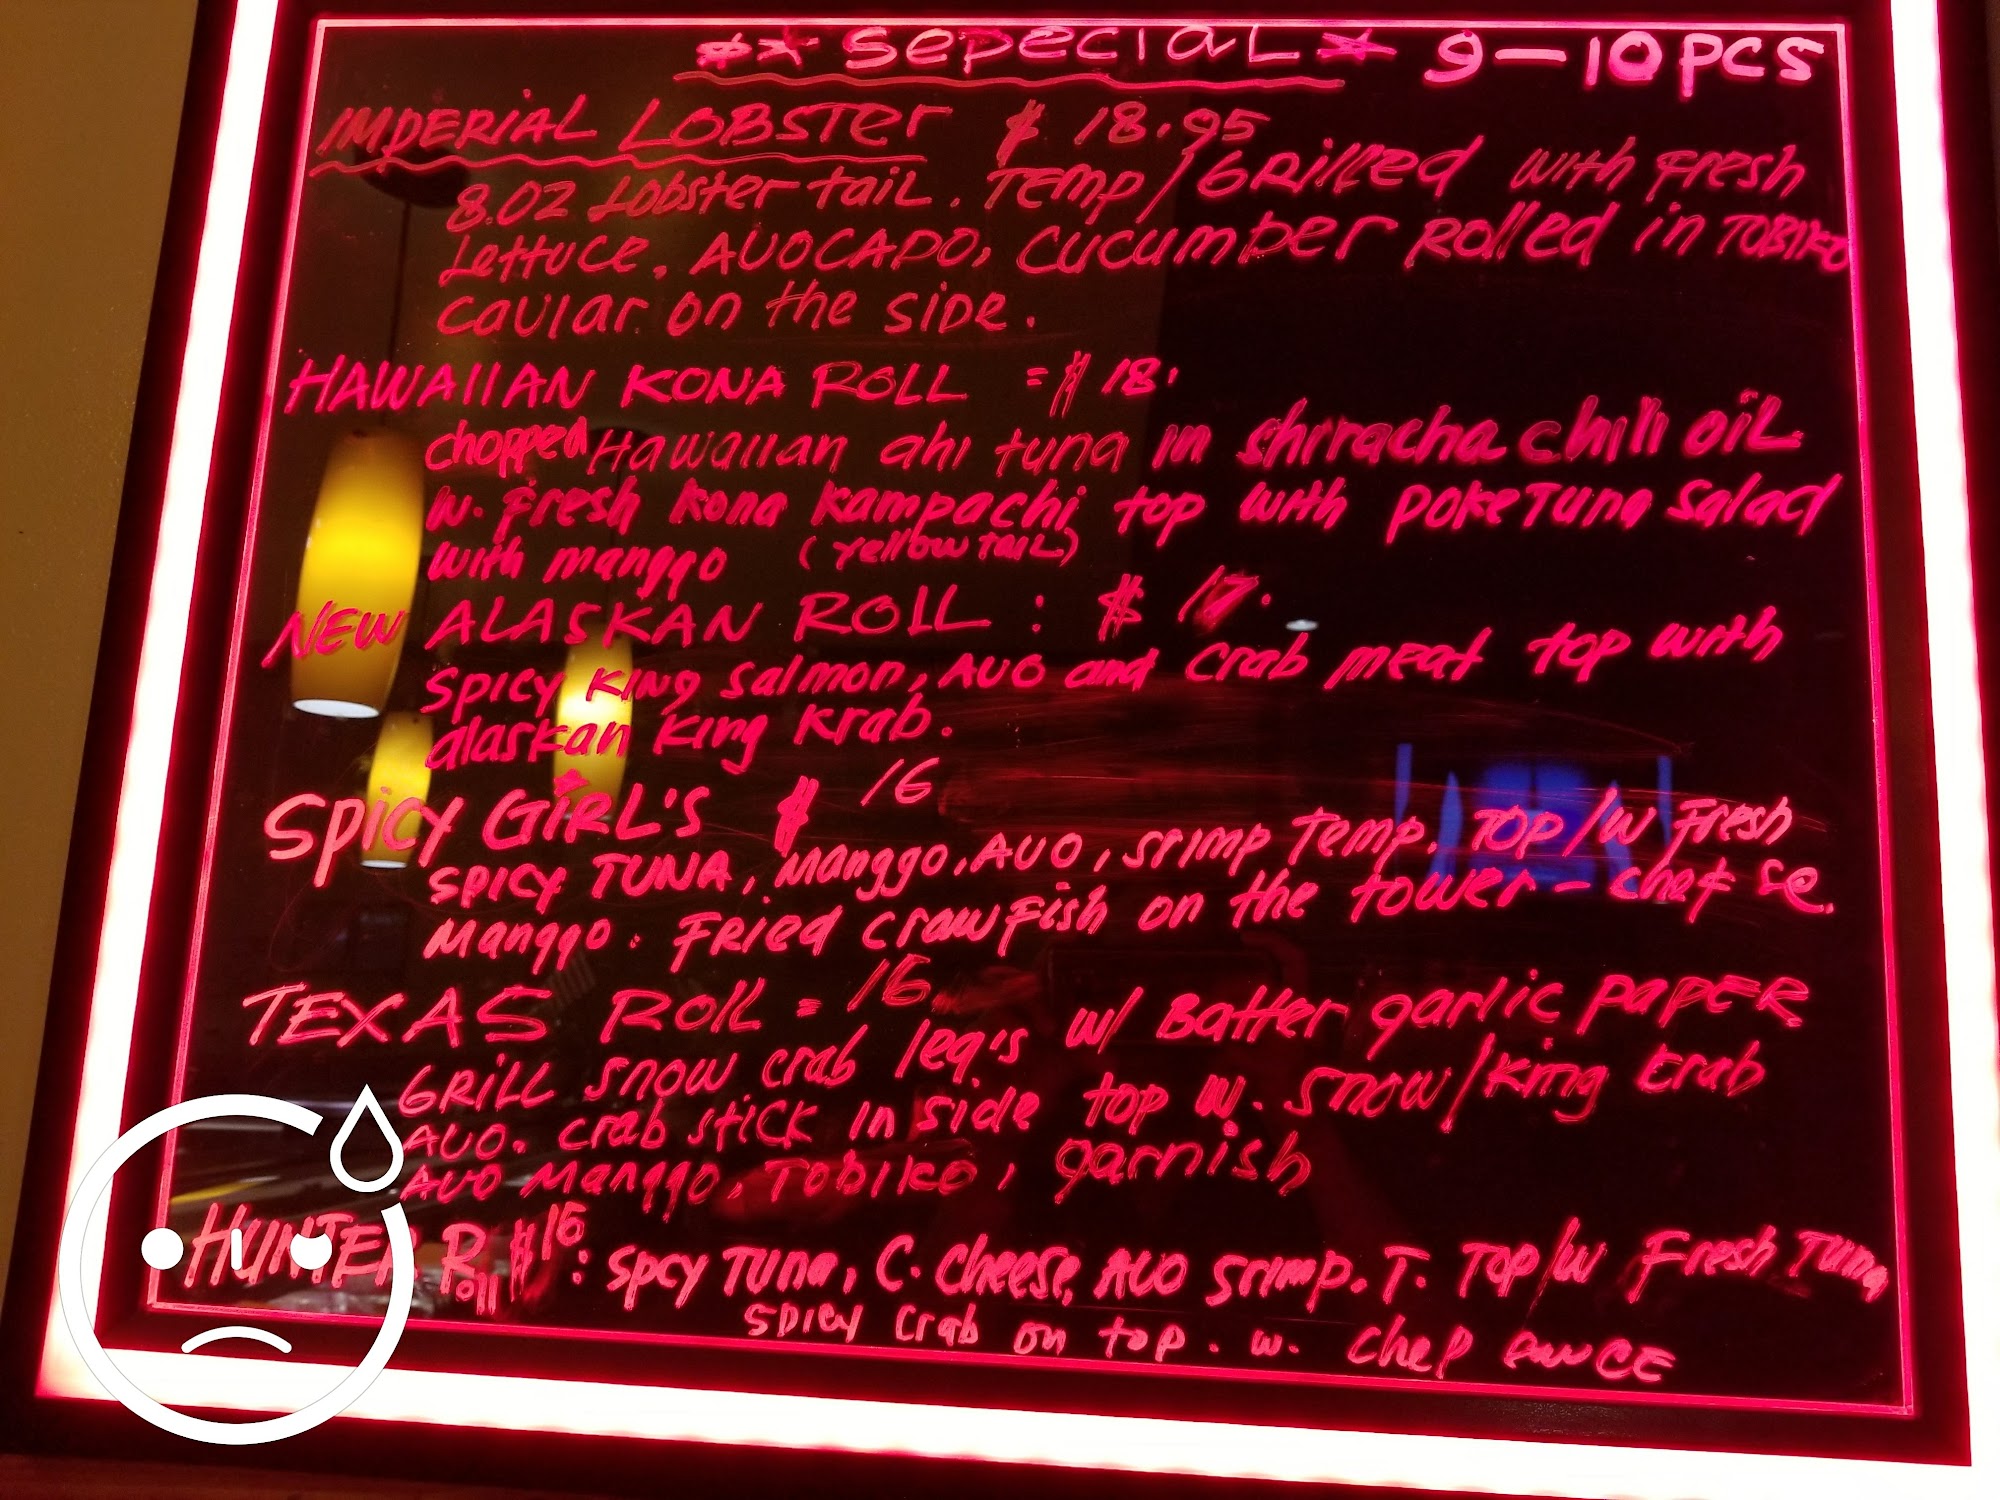 $* SEPECIAL * 9-10 PCS
IMPERIAL LOBSTER $ 18.95
8.OZ Lobster tail. Temp/GRilled with Fresh
Lettuce, AVOCADO, Cucumber Rolled in TOBIKO
Caviar on the side.
HAWAIIAN KONA ROLL = $ 18.
chopped Hawaiian ahi tuna in shrracha chili oil
w. Fresh kona kampachi top with poke Tuna Salad
with manggo (Yellow tail)
NEW ALASKAN ROLL : $ 17.
Spicy King Salmon, AVO and Crab meat top with
alaskan King Krab.
SPICY GIRL'S $ 16
SPICY TUNA, Manggo, AVO, Srimp Temp. TOP/W Fresh
Manggo. FRied CrawFish on the tower - chef se.
TEXAS Roll = 16
GRILL Snow crab leg's w/ Batter garlic PAPER
AVO. Crab stick in side top w. snow/King Krab
AVO Manggo, Tobiko, garnish
HUNTER Roll $16: Spcy Tuna, C. Cheese, AVO Srimp. T. Top/w Fresh Tuna
Spicy Crab on top. w. Chef